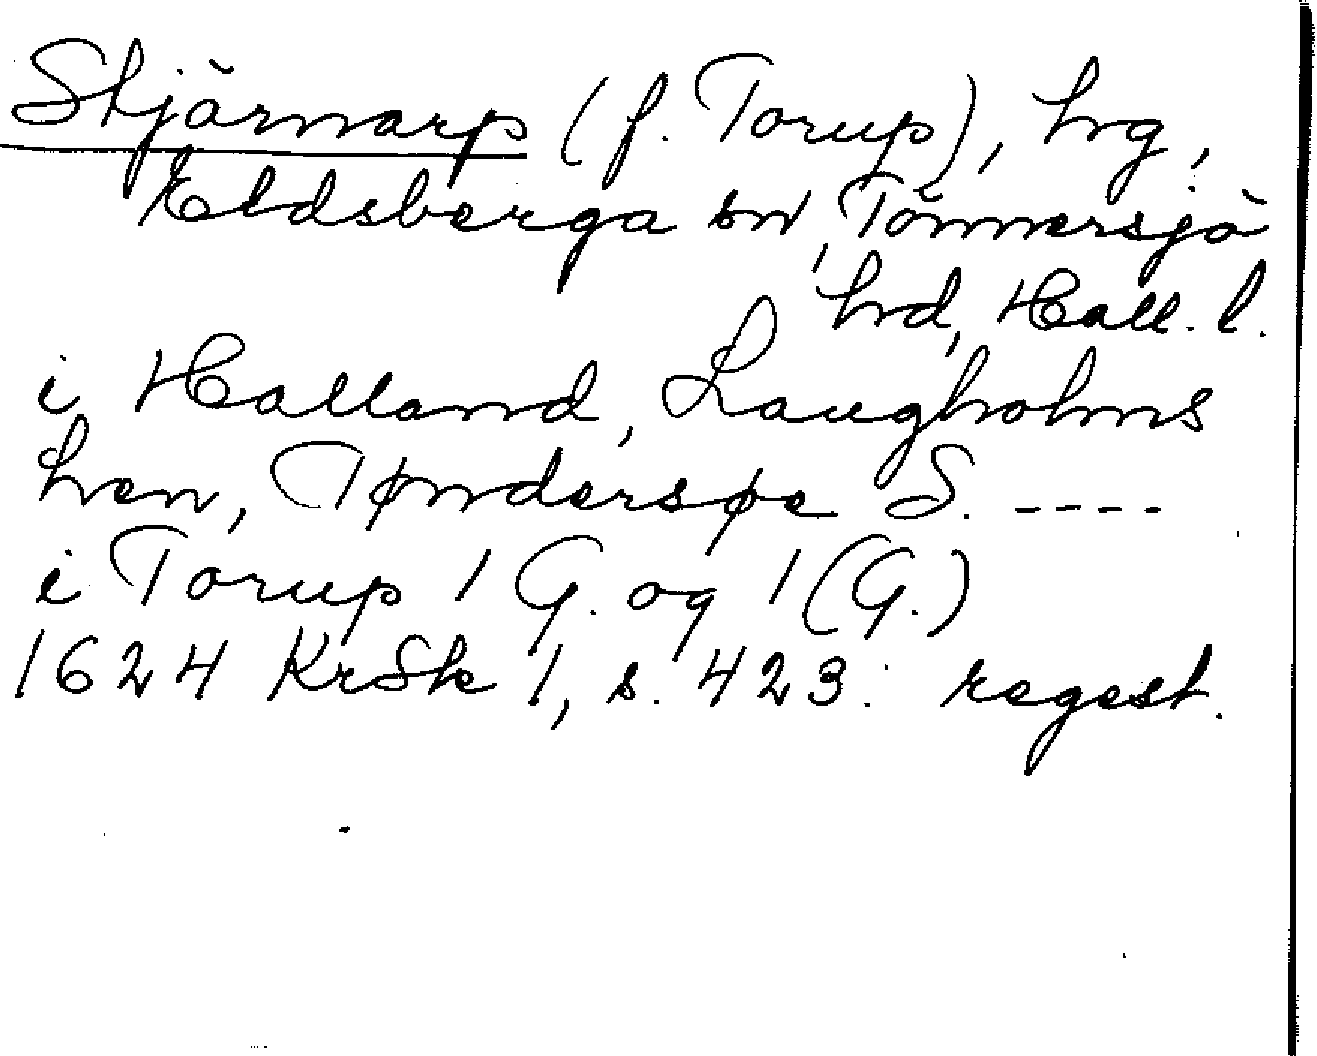 Stjärnarp (f. Torup), hrg,
Eldsberga sn, Tönnersjö
hrd, Hall. l.
i Halland, Laugholms
Len, Tønderspe S. ----
i Torup 1 G. og 1 (G.)
1624 KrSk 1, s. 423. regest.